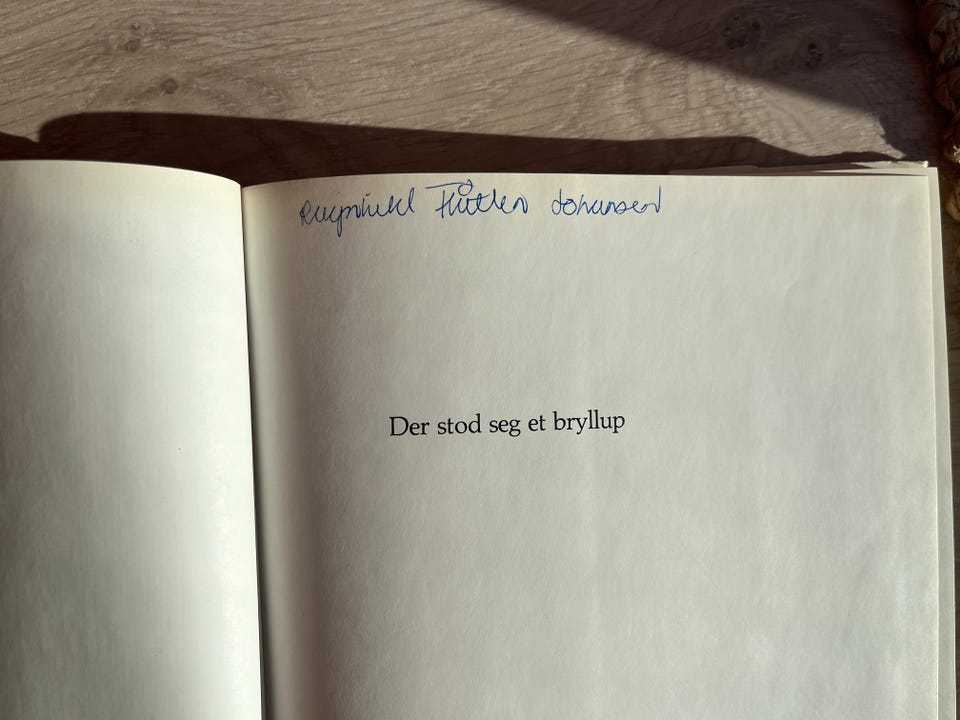 Ragnhild Johansen
Der stod seg et bryllup